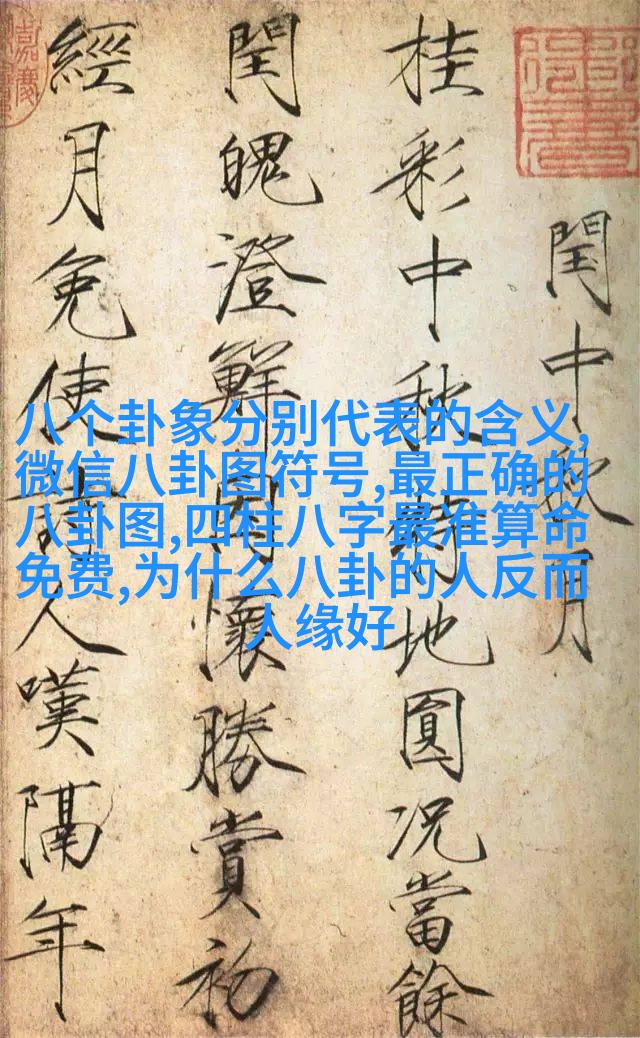 閏中秋月
桂彩中秋特地圓況當餘
閏魄澄鮮因懷勝賞初
經月免使詩人嘆隔年
八个卦象分别代表的含义,
微信八卦图符号,最正确的
八卦图,四柱八字最准算命
免费,为什么八卦的人反而
人缘好